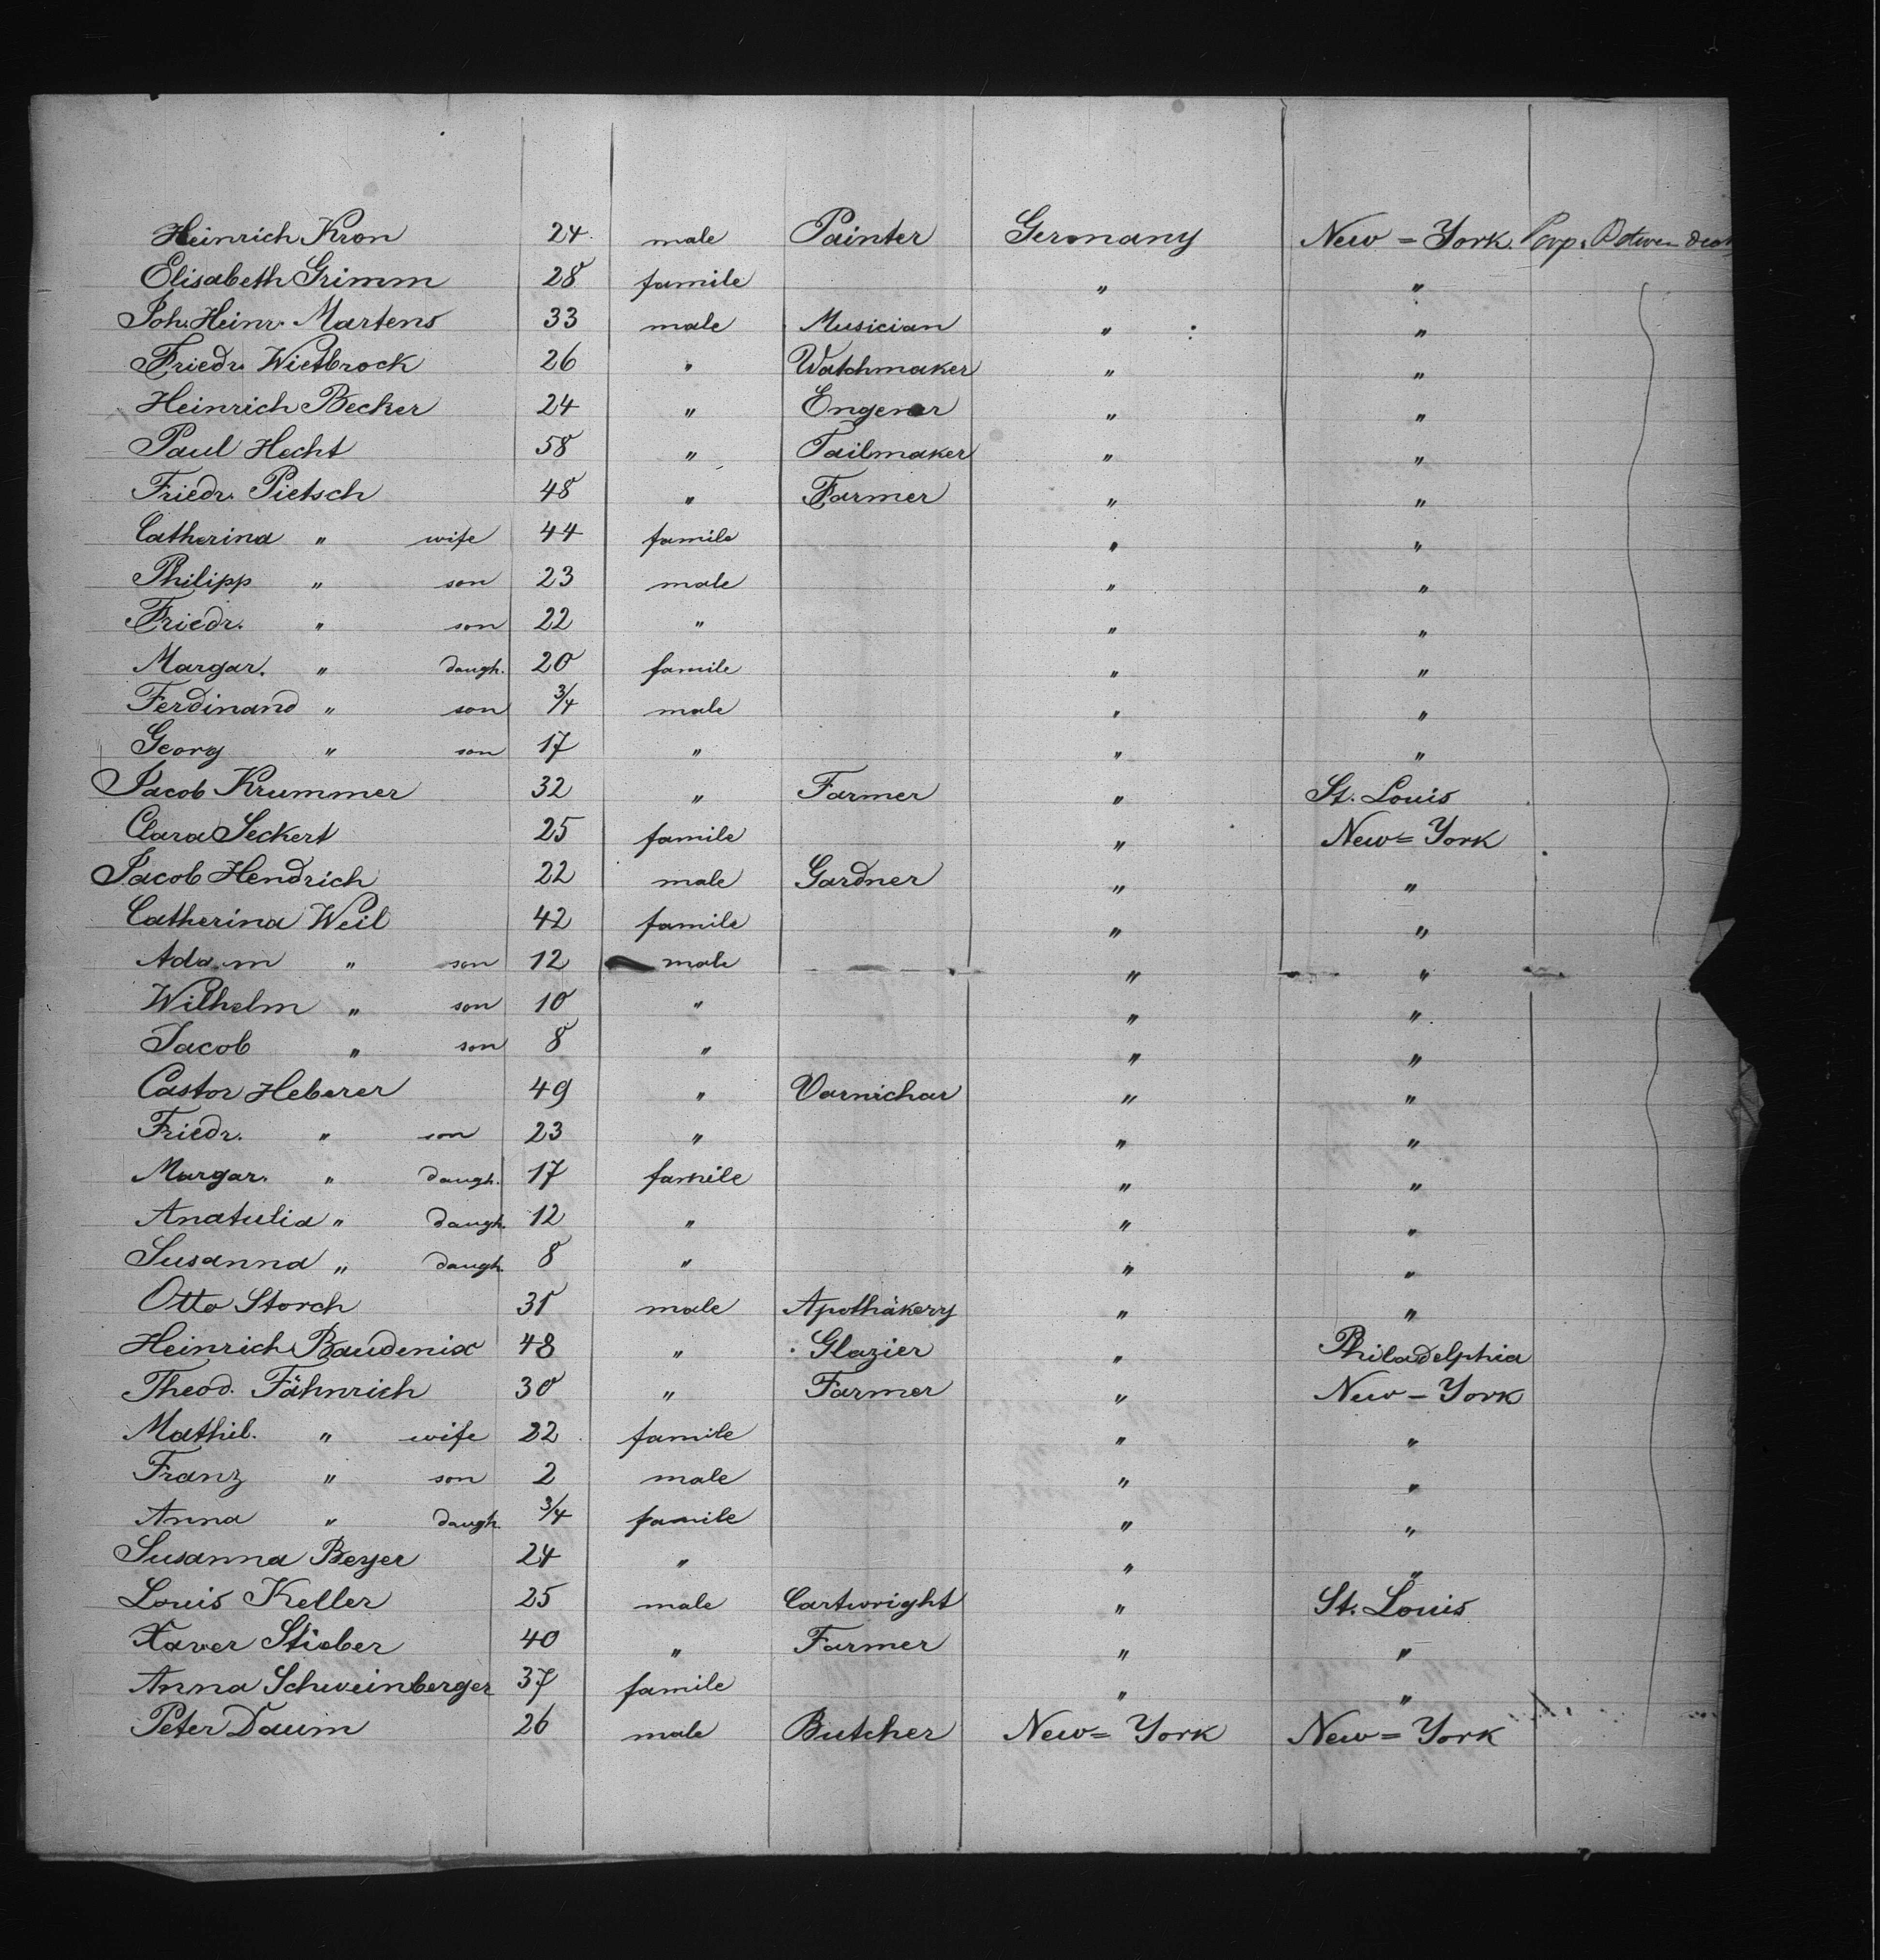 Heinrich Kron 24 male Painter Germany New=York.
Elisabeth Grimm 28 famile " "
Joh. Heinr. Martens 33 male Musician " "
Friedr. Wietbrock 26 " Watchmaker " "
Heinrich Becker 24 " " "
Paul Hecht 58 " Tailmaker " "
Friedr. Pietsch 48 " Farmer " "
Catherina " wife 44 famile " "
Philipp " son 23 male " "
Friedr. " son 22 " " "
Margar. " daugh. 20 famile " "
Ferdinand " son 3/4 male " "
Georg " son 17 " " "
Jacob Krummer 32 " Farmer " St. Louis
Clara Seckert 25 famile " New=York
Jacob Hendrich 22 male Gardner " "
Catherina Weil 42 famile " "
Adam " son 12 male " "
Wilhelm " son 10 " " "
Jacob " son 8 " " "
Castor Heberer 49 " Varnichar " "
Friedr. " son 23 " " "
Margar. " daugh. 17 famile " "
Anatulia " daugh. 12 " " "
Susanna " daugh. 8 " " "
Otto Storch 31 male Apothäkery " "
Heinrich Baudenix 48 " Glazier " Philadelphia
Theod. Fähnrich 30 " Farmer " New=York
Mathil. " wife 22 famile " "
Franz " son 2 male " "
Anna " daugh. 3/4 famile " "
Susanna Beyer 24 " " "
Louis Keller 25 male Cartwright " St. Louis
Xaver Stieber 40 " Farmer " "
Anna Schweinberger 37 famile " "
Peter Daum 26 male Butcher New=York New=York